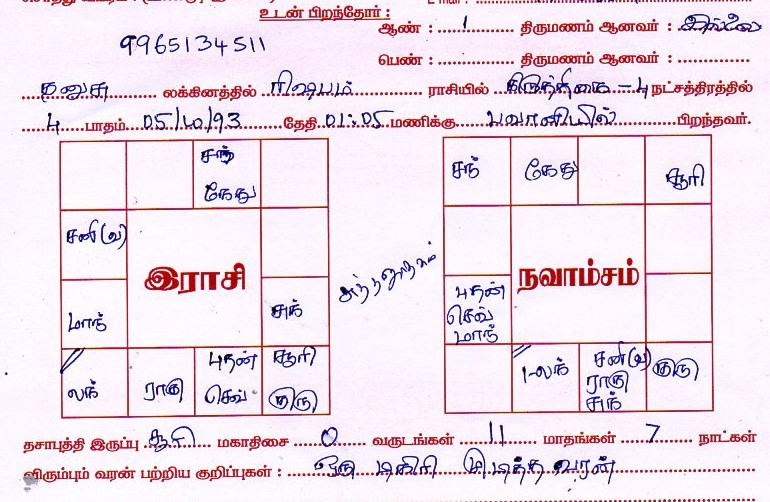 உடன் பிறந்தோர் :
ஆண் : 1 திருமணம் ஆனவர் : இல்லை
9965134511
பெண் : திருமணம் ஆனவர் :
தனுசு லக்கினத்தில் ரிஷபம் ராசியில் கிருத்திகை – 4 நட்சத்திரத்தில்
4 பாதம் 05/10/93 தேதி 01:05 மணிக்கு பவானியில் பிறந்தவர்.
சந் கேது
சனி(வ)
இராசி
மாந்
சுக்
லக் ராகு புதன் செவ் சூரி குரு
சுத்தஜாதகம்
சந் கேது சூரி
நவாம்சம்
புதன் செவ் மாந்
லக் சனி(வ) ராகு சுக் குரு
தசாபுத்தி இருப்பு சூரி மகாதிசை 0 வருடங்கள் 11 மாதங்கள் 7 நாட்கள்
விரும்பும் வரன் பற்றிய குறிப்புகள் : ஒரு டிகிரி படித்த வரன்